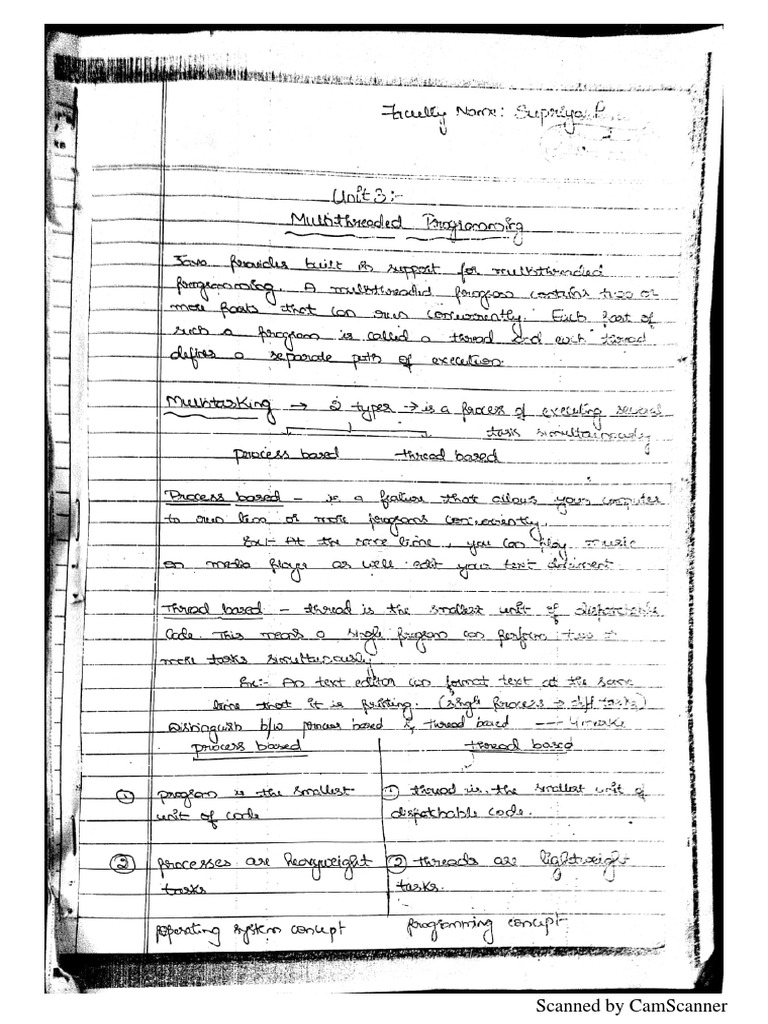 Faculty Name: Supriya
Unit 3:-
Multithreaded Programming
Java provides built in support for multithreaded
programming. A multithreaded program contains two or
more parts that can run concurrently. Each part of
such a program is called a thread and each thread
defines a separate path of execution.
Multitasking → 2 types → is a process of executing several
task simultaneously
process based thread based
Process based - is a feature that allows your computer
to run two or more programs concurrently.
Ex:- At the same time, you can play music
on media player as well edit your text document.
Thread based - thread is the smallest unit of dispatchable
code. This means a single program can perform two or
more tasks simultaneously.
Ex:- An text editor can format text at the same
time that it is printing. (single process → diff tasks)
Distinguish b/w process based & thread based ---
process based thread based
① program is the smallest ① thread is the smallest unit of
unit of code dispatchable code.
② processes are heavyweight ② threads are lightweight
tasks tasks.
operating system concept programming concept
Scanned by CamScanner